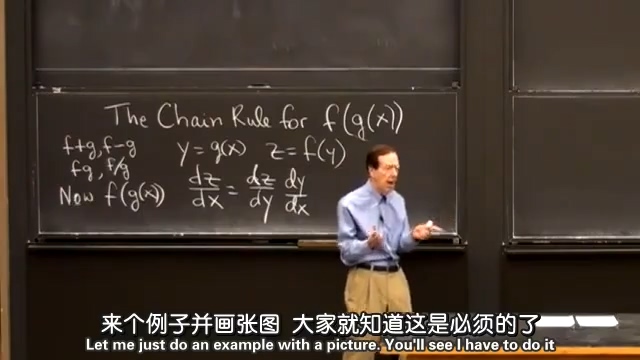 The Chain Rule for f(g(x))
f+g, f-g y = g(x) z = f(y)
fg, f/g
Now f(g(x)) dz/dx = dz/dy dy/dx
来个例子并画张图 大家就知道这是必须的了
Let me just do an example with a picture. You'll see I have to do it